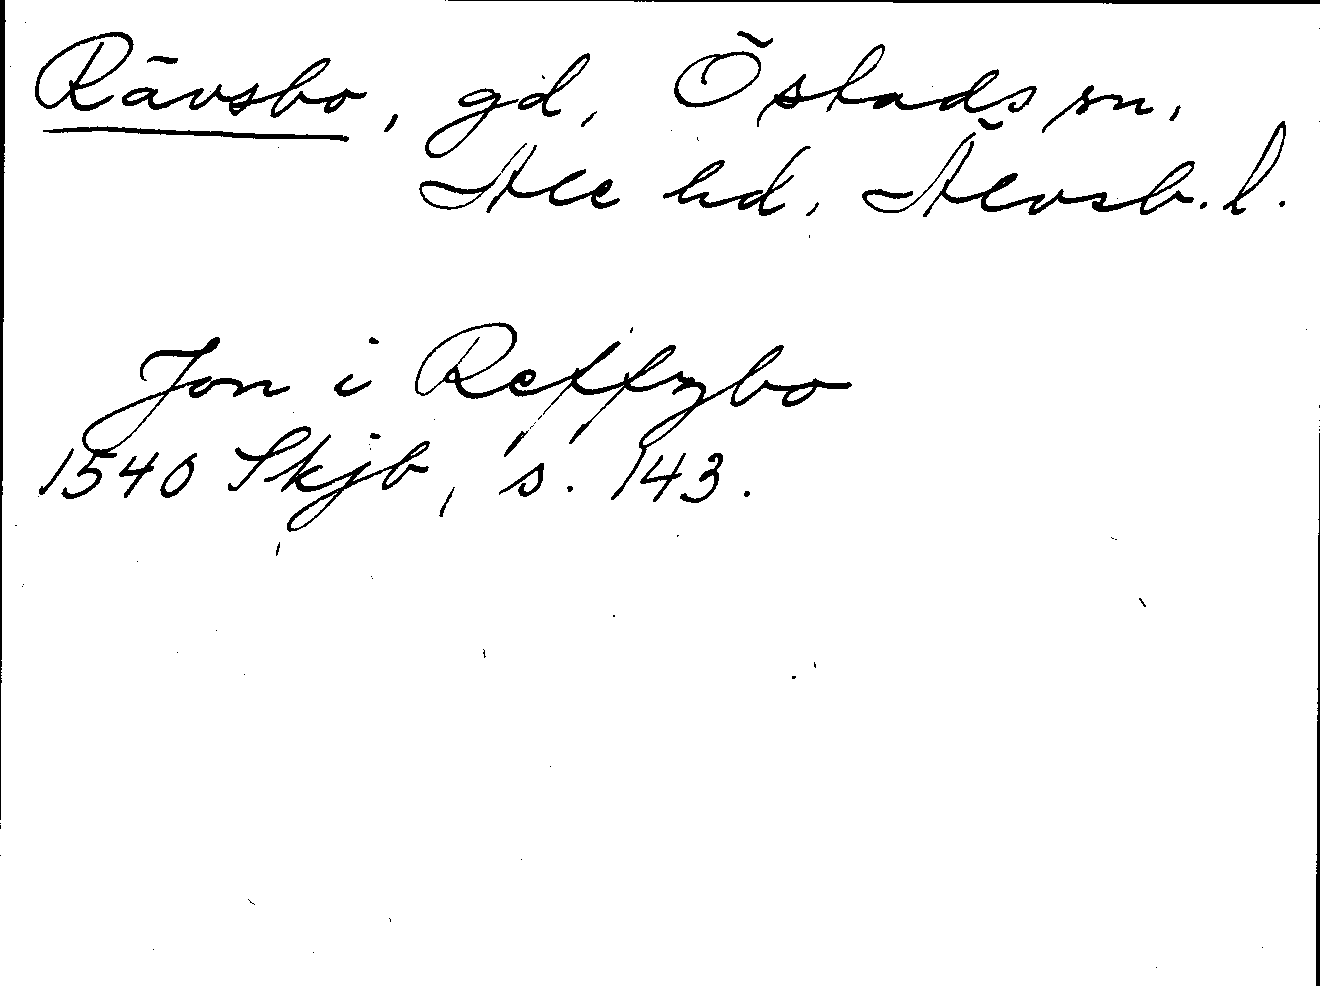 Rävsbo, gd, Östads sn,
Ale hd, Älvsb. l.
Jon i Reffzbo
1540 Skjb, s. 143.